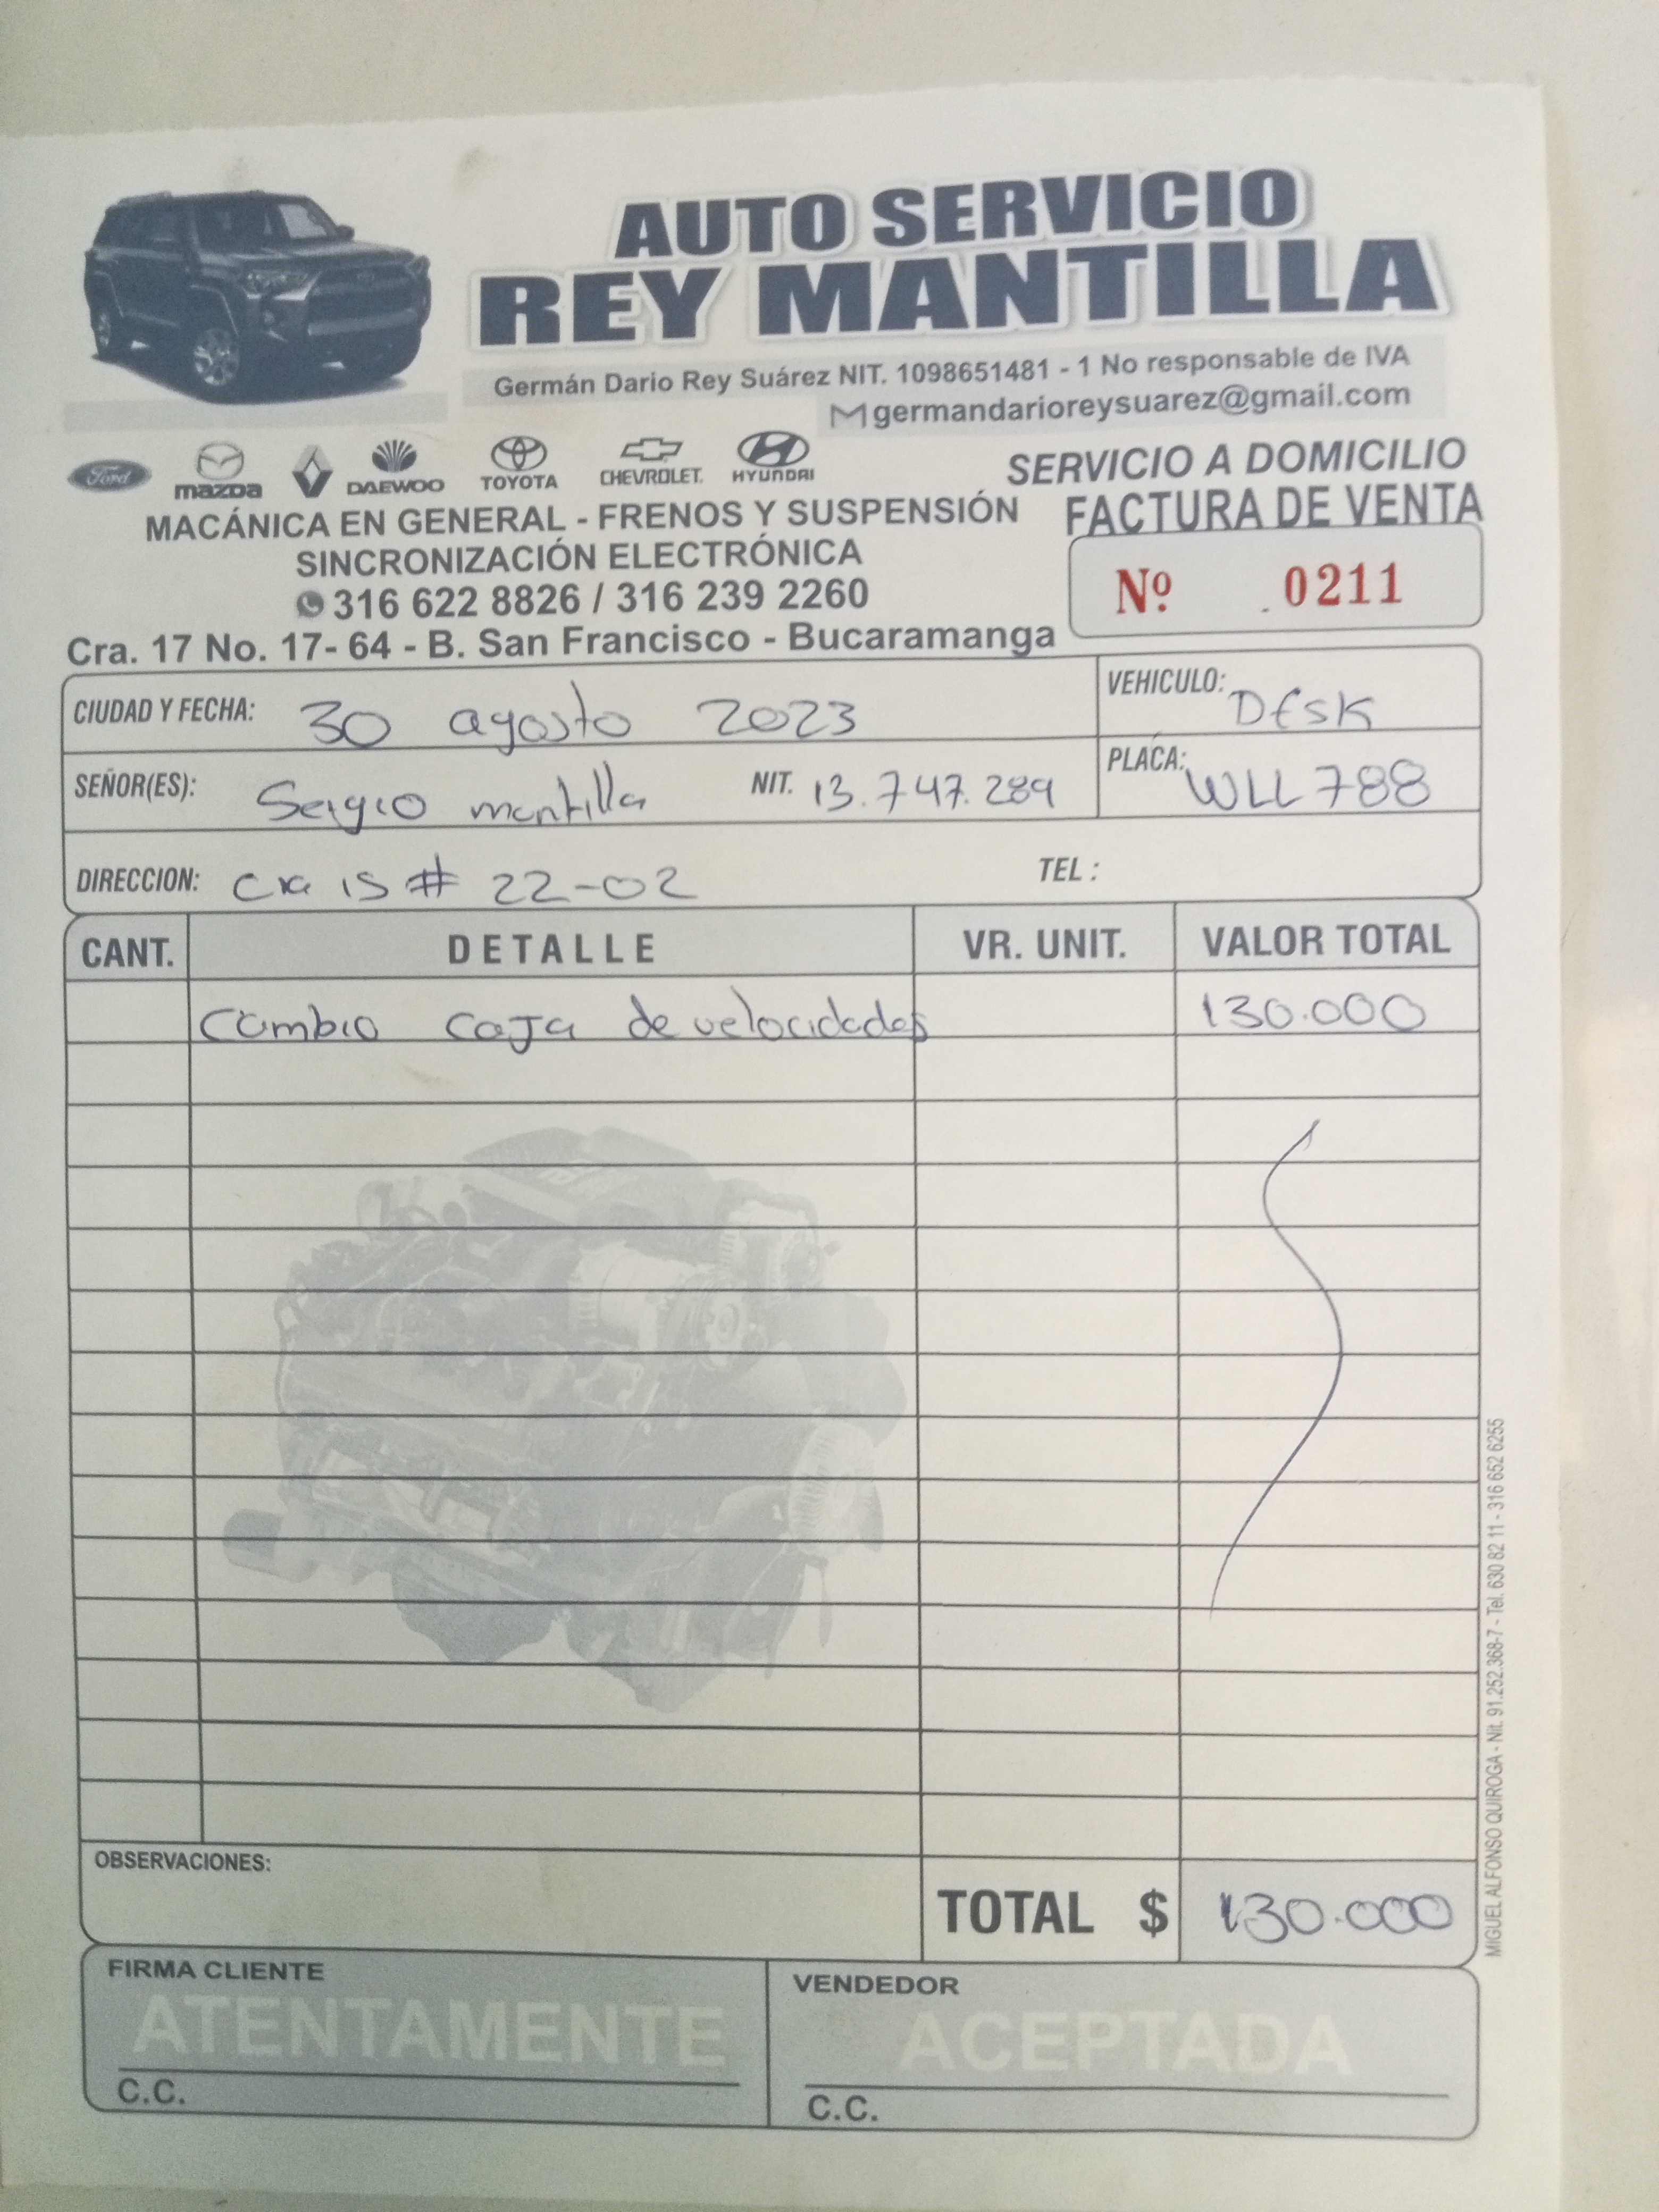 AUTO SERVICIO
REY MANTILLA
Germán Dario Rey Suárez NIT. 1098651481 - 1 No responsable de IVA
germandarioreysuarez@gmail.com
Ford mazda DAEWOO TOYOTA CHEVROLET HYUNDAI
SERVICIO A DOMICILIO
MACÁNICA EN GENERAL - FRENOS Y SUSPENSIÓN
SINCRONIZACIÓN ELECTRÓNICA
316 622 8826 / 316 239 2260
Cra. 17 No. 17- 64 - B. San Francisco - Bucaramanga
FACTURA DE VENTA
Nº 0211
CIUDAD Y FECHA: 30 agosto 2023
VEHICULO: DFSK
SEÑOR(ES): Sergio mantilla NIT. 13.747.289
PLACA: WLL788
DIRECCION: Cra 15 # 22-02 TEL :
CANT. DETALLE VR. UNIT. VALOR TOTAL
Cambio caja de velocidades 130.000
OBSERVACIONES:
TOTAL $ 130.000
FIRMA CLIENTE
ATENTAMENTE
C.C.
VENDEDOR
ACEPTADA
C.C.
MIGUEL ALFONSO QUIROGA - Nit. 91.252.368-7 - Tel. 630 82 11 - 316 652 6255